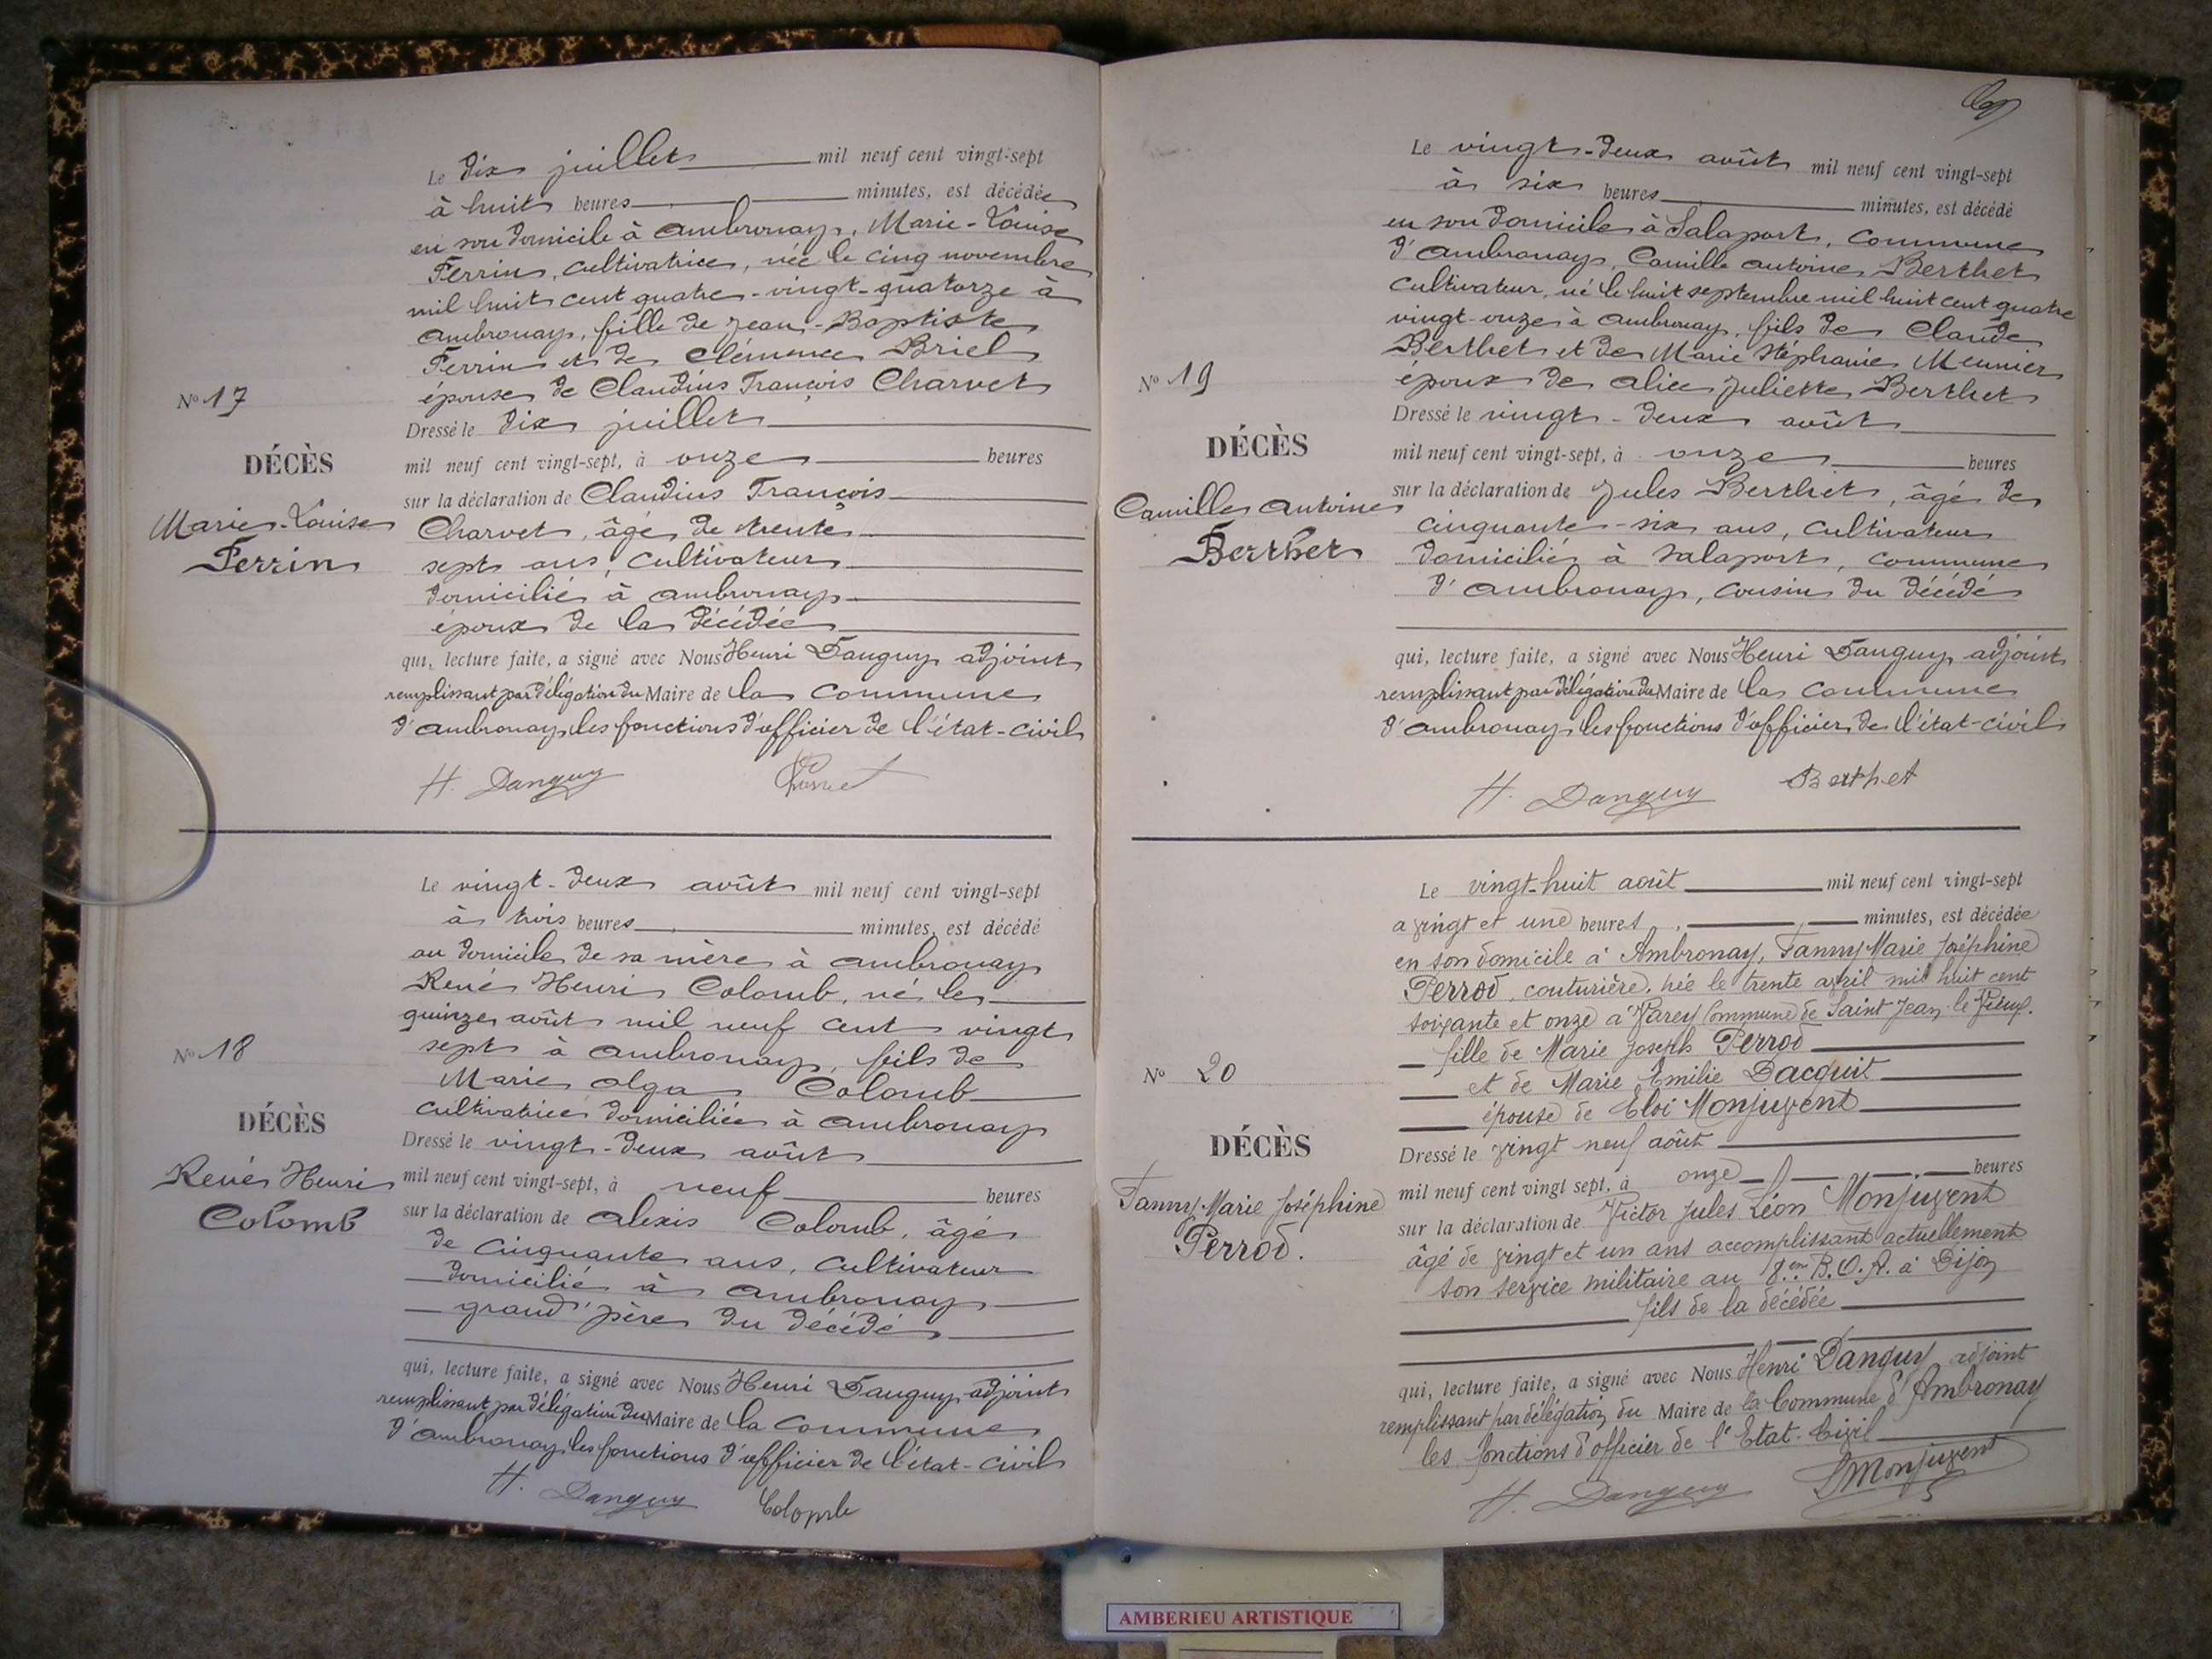 Le dix juillet mil neuf cent vingt-sept
à huit heures minutes, est décédée
en son domicile à Ambronay, Marie-Louise
Ferrin, cultivatrice, née le cinq novembre
mil huit cent quatre-vingt-quatorze à
Ambronay, fille de Jean-Baptiste
Ferrin et de Clémence Briel
épouse de Claudius François Charvet
Nº 17
Dressé le dix juillet
DÉCÈS
mil neuf cent vingt-sept, à onze heures
sur la déclaration de Claudius François
Marie-Louise
Charvet, âgé de trente
Ferrin
sept ans, cultivateur
domicilié à Ambronay
époux de la décédée
qui, lecture faite, a signé avec Nous Henri Danguy adjoint
remplissant par délégation du Maire de la commune
d'Ambronay les fonctions d'officier de l'état-civil
H. Danguy
Le vingt-deux août mil neuf cent vingt-sept
à trois heures minutes, est décédé
au domicile de sa mère à Ambronay
René Henri Colomb, né le
quinze août mil neuf cent vingt
sept à Ambronay, fils de
Nº 18
Marie Olga Colomb
cultivatrice domiciliée à Ambronay
DÉCÈS
Dressé le vingt-deux août
René Henri
mil neuf cent vingt-sept, à neuf heures
Colomb
sur la déclaration de Alexis Colomb, âgé
de cinquante ans, cultivateur
domicilié à Ambronay
grand'père du décédé
qui, lecture faite, a signé avec Nous Henri Danguy adjoint
remplissant par délégation du Maire de la commune
d'Ambronay les fonctions d'officier de l'état-civil
H. Danguy Colomb
Le vingt-deux août mil neuf cent vingt-sept
à six heures minutes, est décédé
en son domicile à Salaport, commune
d'Ambronay, Camille Antoine Berthet
cultivateur, né le huit septembre mil huit cent quatre
vingt-onze à Ambronay, fils de Claude
Berthet et de Marie Stéphanie Meunier
Nº 19
époux de Alice Juliette Berthet
Dressé le vingt-deux août
DÉCÈS
mil neuf cent vingt-sept, à onze heures
Camille Antoine
sur la déclaration de Jules Berthet, âgé de
cinquante-six ans, cultivateur
Berthet
domicilié à Salaport, commune
d'Ambronay, cousin du décédé
qui, lecture faite, a signé avec Nous Henri Danguy adjoint
remplissant par délégation du Maire de la commune
d'Ambronay les fonctions d'officier de l'état-civil
H. Danguy Berthet
Le vingt-huit août mil neuf cent vingt-sept
a vingt et une heures minutes, est décédée
en son domicile à Ambronay, Fanny Marie Joséphine
Perrod, couturière, née le trente avril mil huit cent
soixante et onze à Varey Commune de Saint Jean-le-Vieux.
fille de Marie Joseph Perrod
Nº 20
et de Marie Emilie Dacquit
épouse de Eloi Monjuvent
DÉCÈS
Dressé le vingt neuf août
mil neuf cent vingt sept, à onze heures
Fanny Marie Joséphine
sur la déclaration de Victor Jules Léon Monjuvent
Perrod.
âgé de vingt et un ans accomplissant actuellement
son service militaire au 18.em B.O.A. à Dijon
fils de la décédée
qui, lecture faite, a signé avec Nous Henri Danguy adjoint
remplissant par délégation du Maire de la Commune d'Ambronay
les fonctions d'officier de l'Etat-Civil
H. Danguy LMonjuvent
AMBERIEU ARTISTIQUE